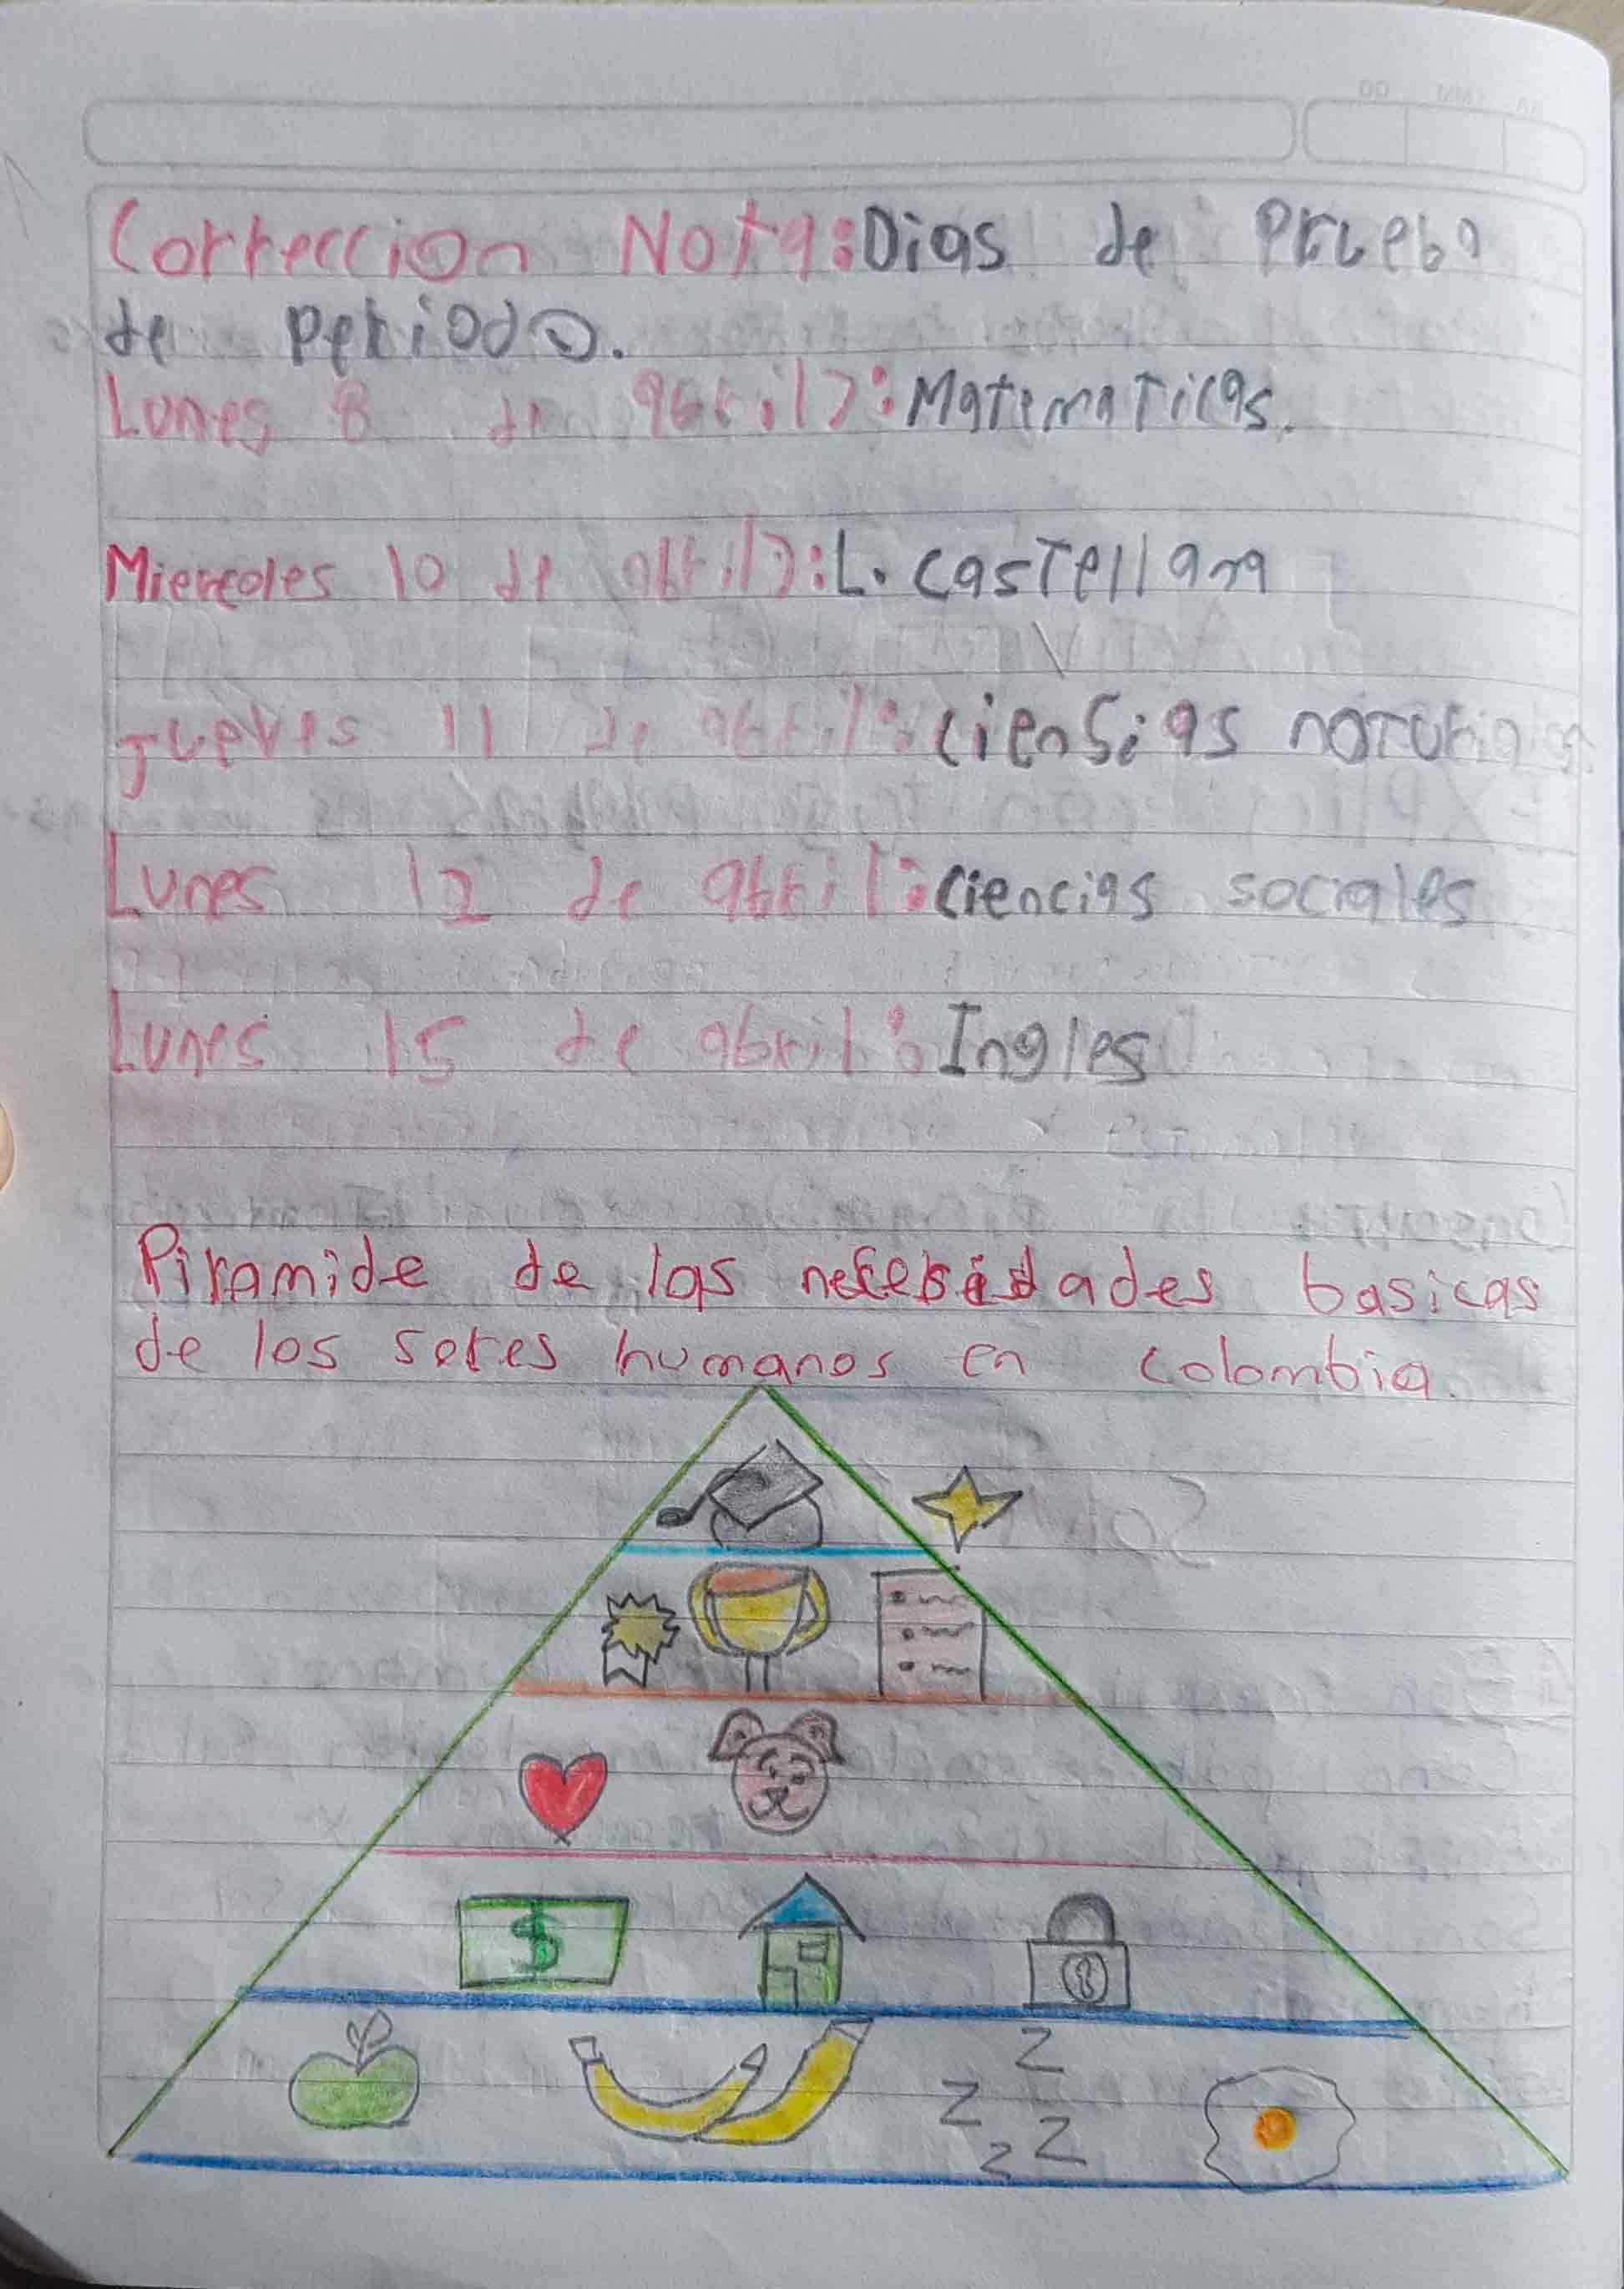 Correccion Nota: Dias de Prueba
de periodo.
Lunes 8 de abril: Matematicas.
Miercoles 10 de abril: L. Castellana
jueves 11 de abril: Ciensias naturales
Lunes 12 de abril: Ciencias sociales
Lunes 15 de abril: Ingles
Piramide de las necesidades basicas
de los seres humanos en colombia.
$
Z
Z Z
Z